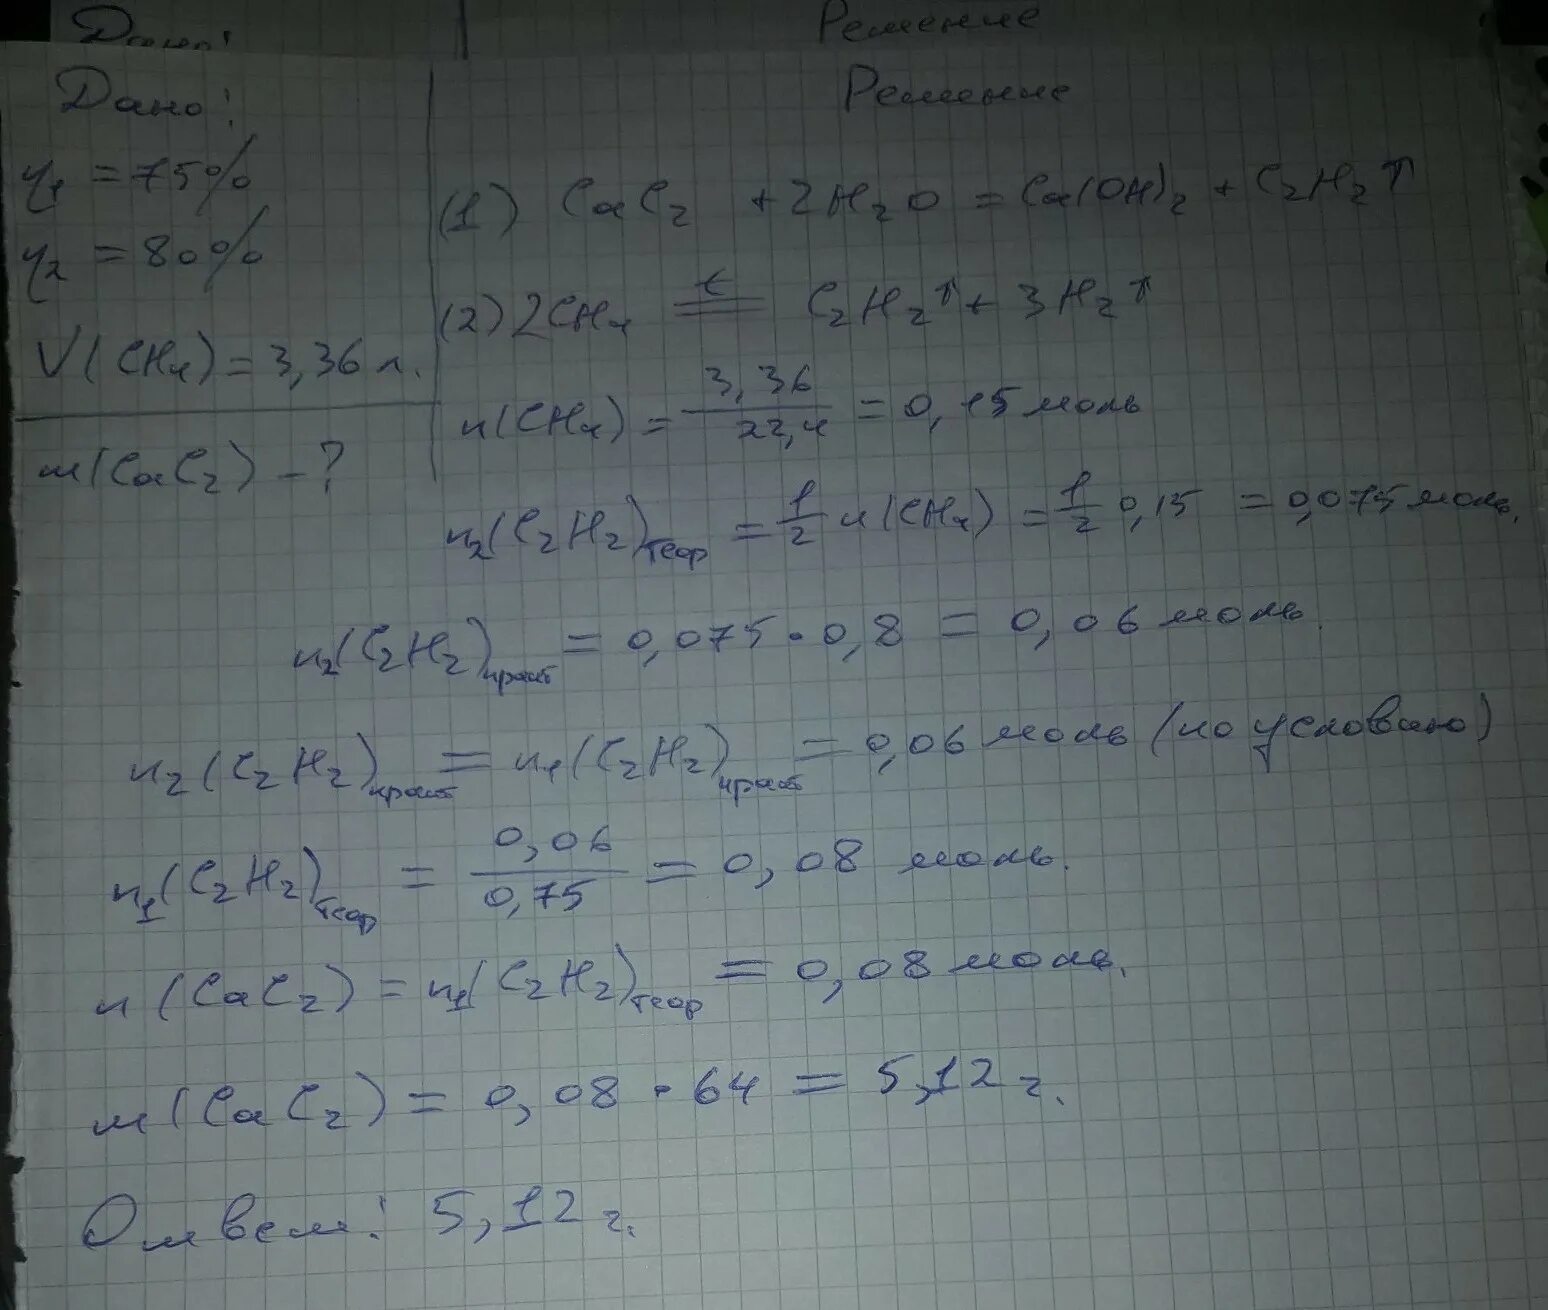 Дано! Решение
Дано! Решение
η₁ = 75%
η₂ = 80%
V(CH₄) = 3,36 л.
m(CaC₂) - ?
(1) CaC₂ + 2H₂O = Ca(OH)₂ + C₂H₂↑
(2) 2CH₄ =t= C₂H₂↑ + 3H₂↑
n(CH₄) = 3,36/22,4 = 0,15 моль
n₂(C₂H₂)теор = 1/2 n(CH₄) = 1/2 0,15 = 0,075 моль.
n₂(C₂H₂)практ = 0,075 · 0,8 = 0,06 моль.
n₂(C₂H₂)практ = n₁(C₂H₂)практ = 0,06 моль (по условию)
n₁(C₂H₂)теор = 0,06/0,75 = 0,08 моль.
n(CaC₂) = n₁(C₂H₂)теор = 0,08 моль.
m(CaC₂) = 0,08 · 64 = 5,12 г.
Ответ: 5,12 г.